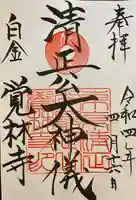 奉拝
令和四年四月十六日
清正公大神儀
白金
覚林寺